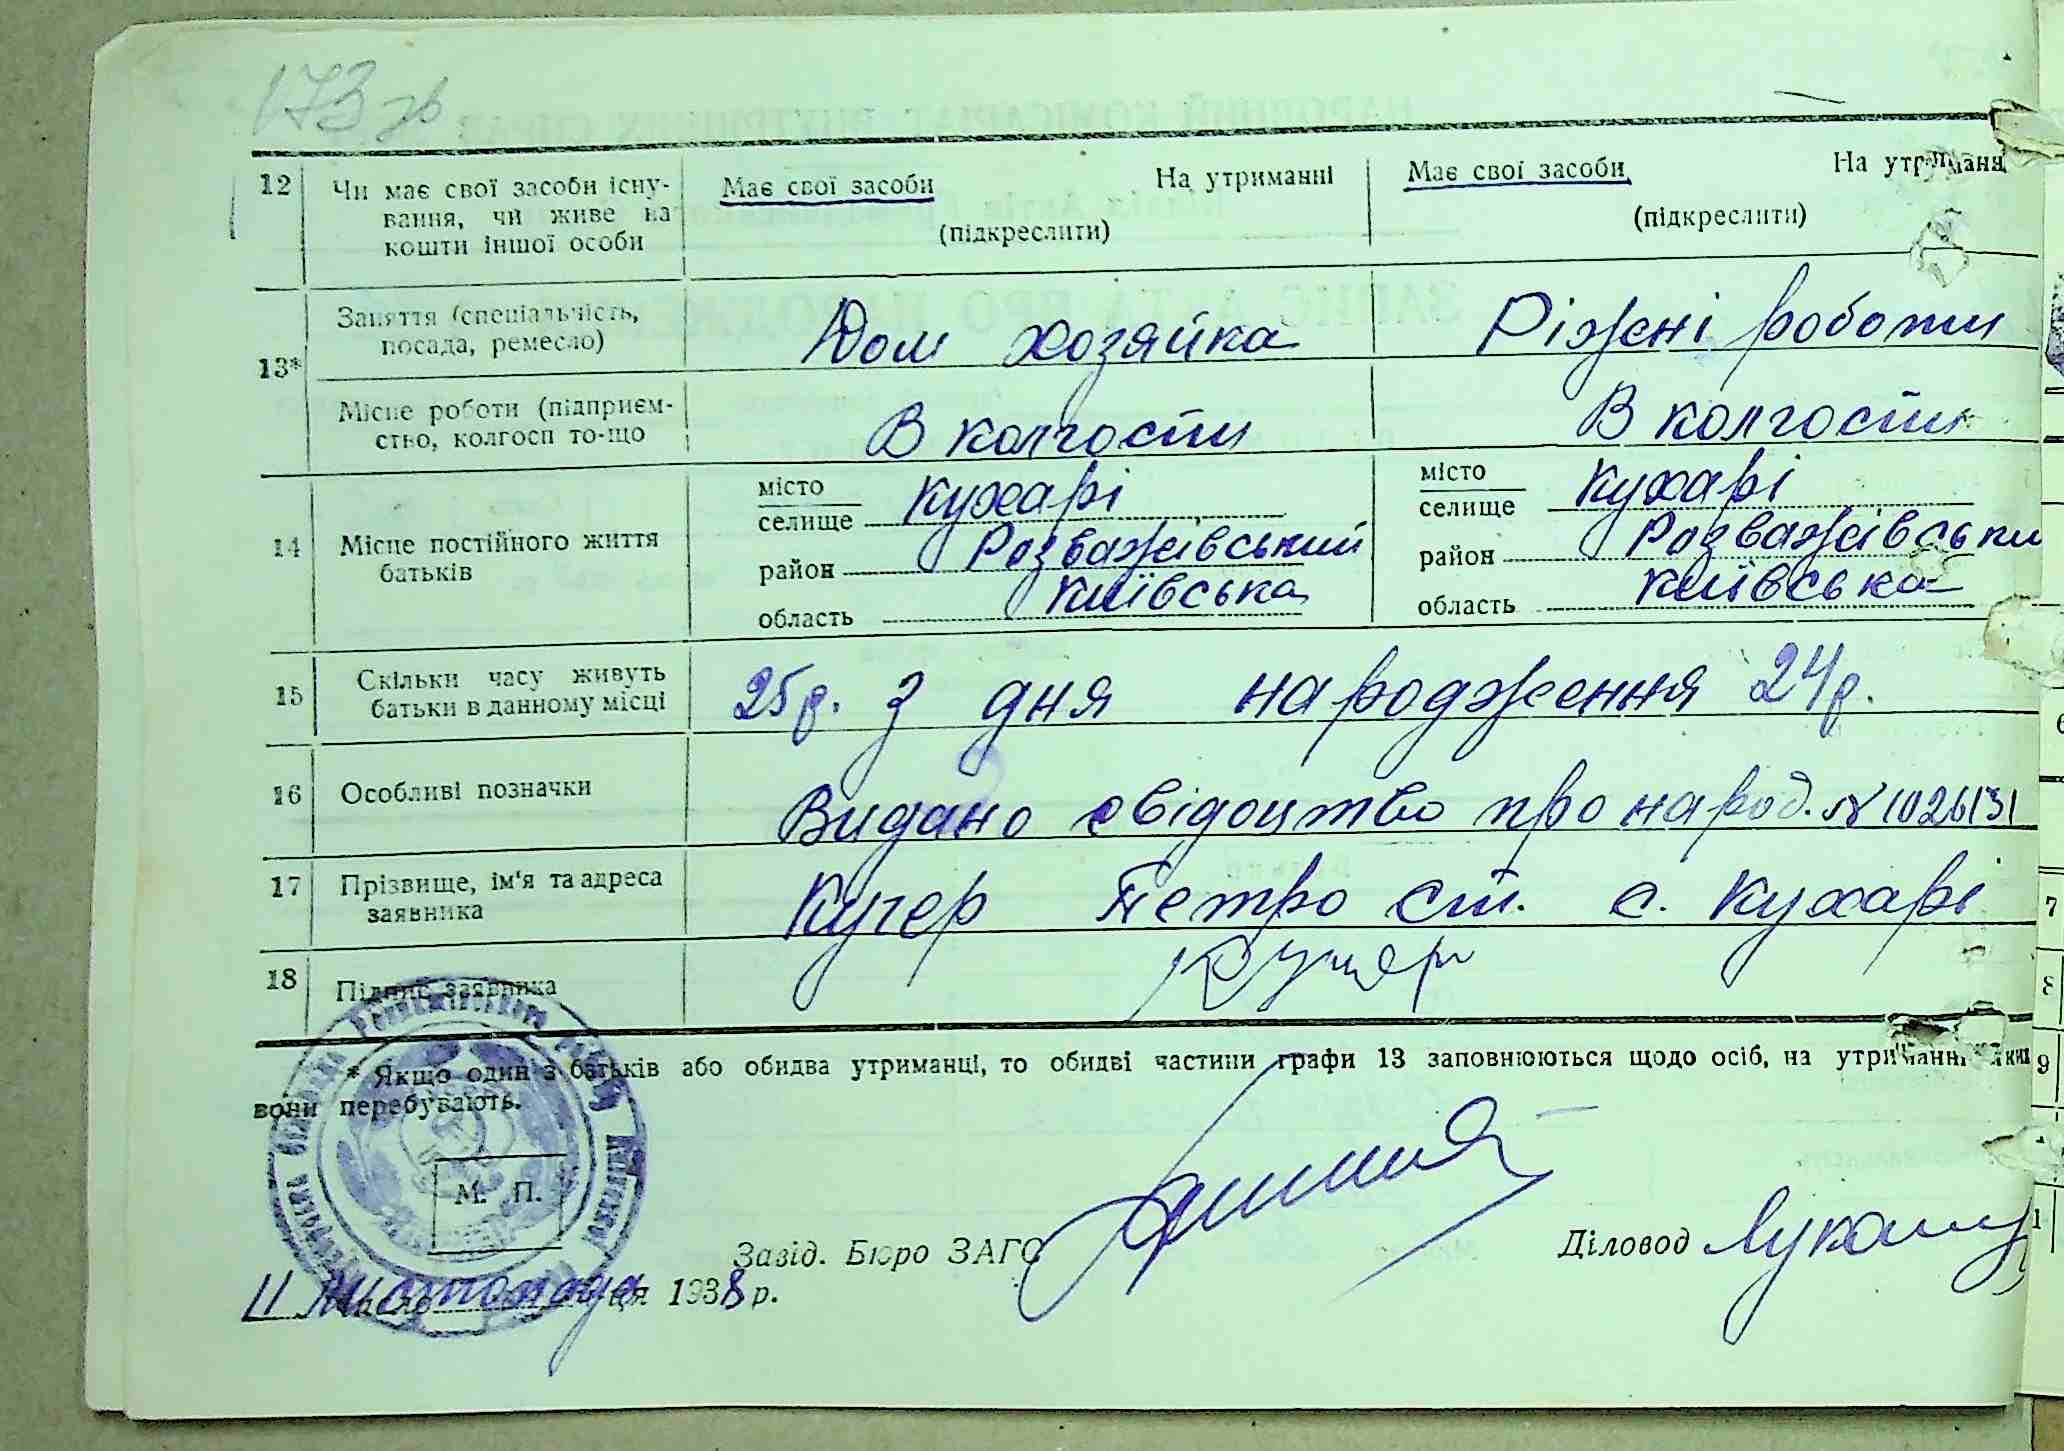 173 зв
12 Чи має свої засоби існу- Має свої засоби На утриманні Має свої засоби На утриманя
вання, чи живе на
кошти іншої особи (підкреслити) (підкреслити)
13* Заняття (спеціальність, Дом хозяйка Ріжні роботи
посада, ремесло)
Місце роботи (підприєм- В колгоспи В колгоспи
ство, колгосп то-що
14 Місце постійного життя
батьків
місто Кухарі місто Кухарі
селище селище
район Розважівський район Розважівськи
область Київська область Київська
15 Скільки часу живуть 25р. з дня народження 24р.
батьки в данному місці
16 Особливі позначки Видано свідоцтво про народ. № 1026131
17 Прізвище, ім'я та адреса Кучер Петро Ст. с. Кухарі
заявника
18 Підпис заявника Кучер
* Якщо один з батьків або обидва утриманці, то обидві частини графи 13 заповнюються щодо осіб, на утриманні яких
вони перебувають.
М. П.
Завід. Бюро ЗАГС Діловод
11 листопада 1938 р.